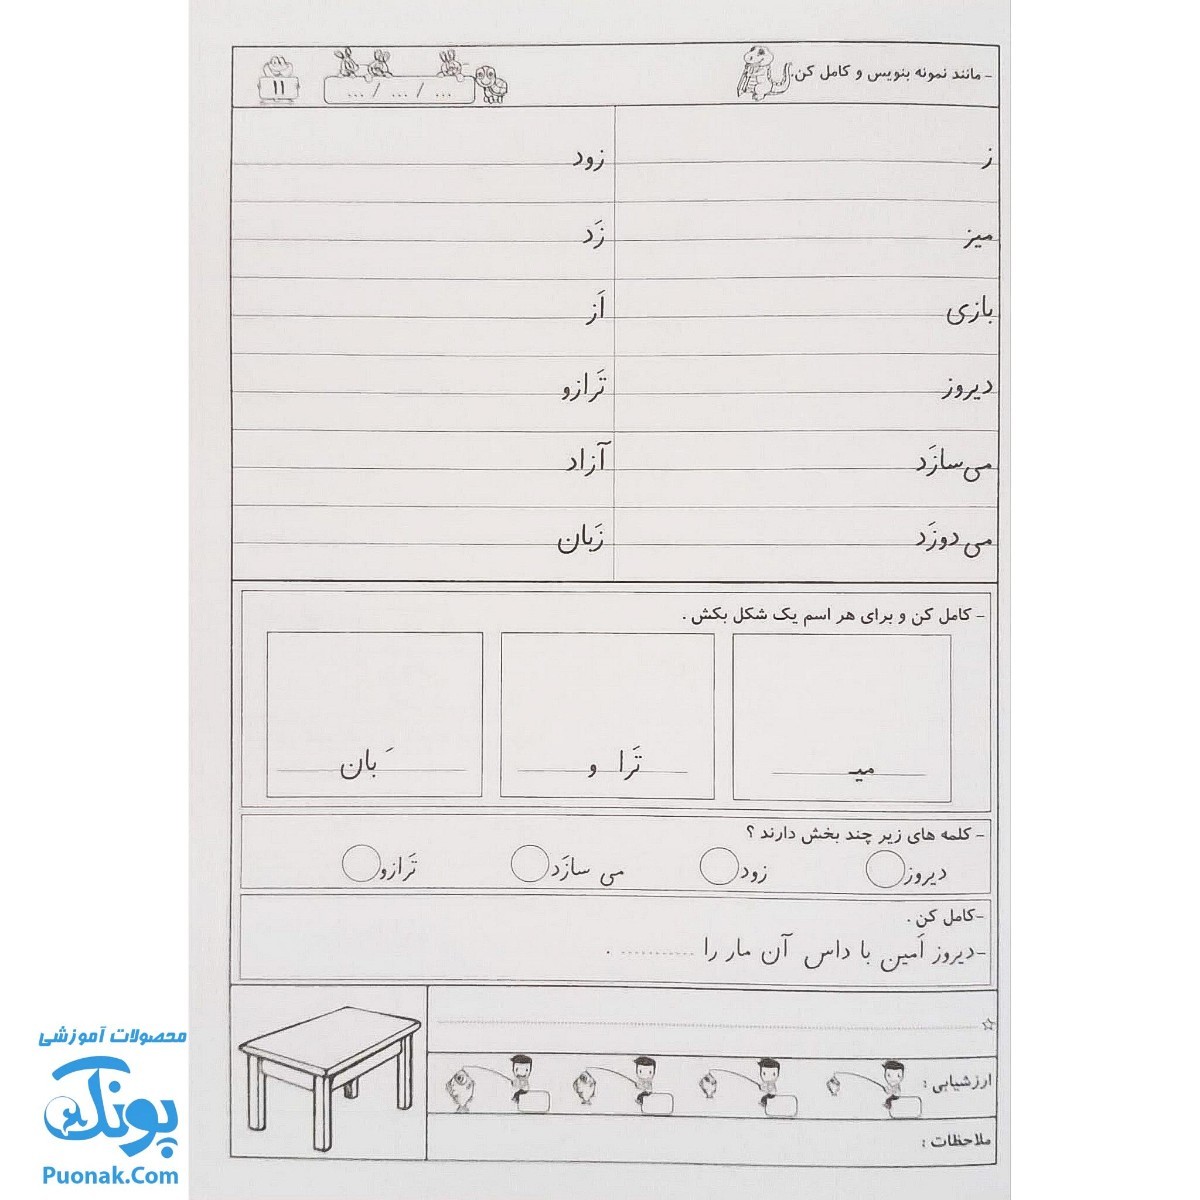 - مانند نمونه بنویس و کامل کن.
... / ... / ...
۱۱
ز
زود
میز
زَد
بازی
اَز
دیروز
تَرازو
می‌سازَد
آزاد
می‌دوزَد
زَبان
- کامل کن و برای هر اسم یک شکل بکش .
میـ
تَرا و
َ بان
- کلمه های زیر چند بخش دارند ؟
دیروز
زود
می سازَد
تَرازو
-کامل کن .
-دیروز اَمین با داس آن مار را ........... .
ارزشیابی :
ملاحظات :
محصولات آموزشی
پونک
Puonak.Com